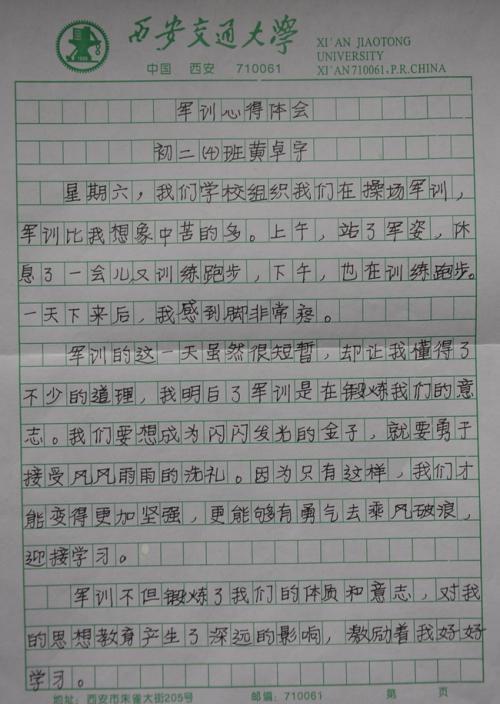 西安交通大学
XI'AN JIAOTONG
UNIVERSITY
中国 西安 710061
XI'AN 710061, P.R.CHINA
军训心得体会
初二(4)班黄卓宇
星期六，我们学校组织我们在操场军训，
军训比我想象中苦的多。上午，站了军姿，休
息了一会儿又训练跑步，下午，也在训练跑步。
一天下来后，我感到脚非常疼。
军训的这一天虽然很短暂，却让我懂得了
不少的道理，我明白了军训是在锻炼我们的意
志。我们要想成为闪闪发光的金子，就要勇于
接受风风雨雨的洗礼。因为只有这样，我们才
能变得更加坚强，更能够有勇气去乘风破浪，
迎接学习。
军训不但锻炼了我们的体质和意志，对我
的思想教育产生了深远的影响，激励着我好好
学习。
地址：西安市朱雀大街205号 邮编：710061 第 页